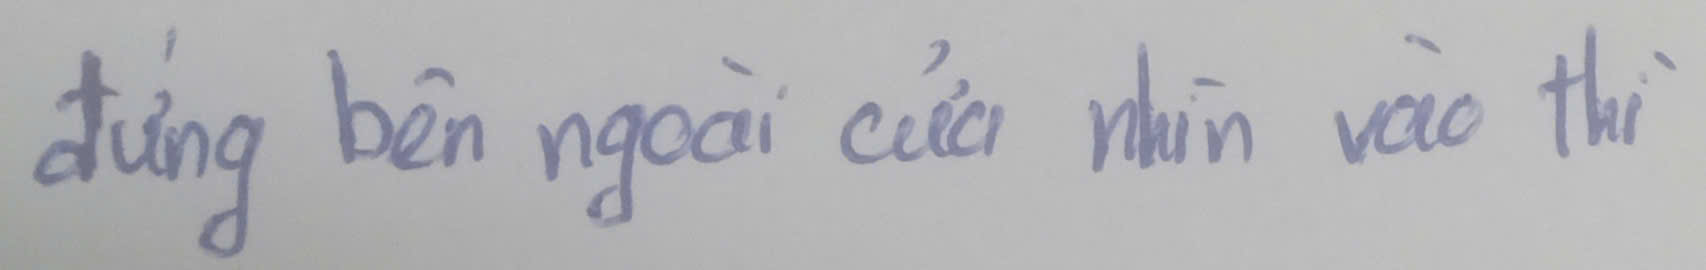 đứng bên ngoài cửa nhìn vào thì